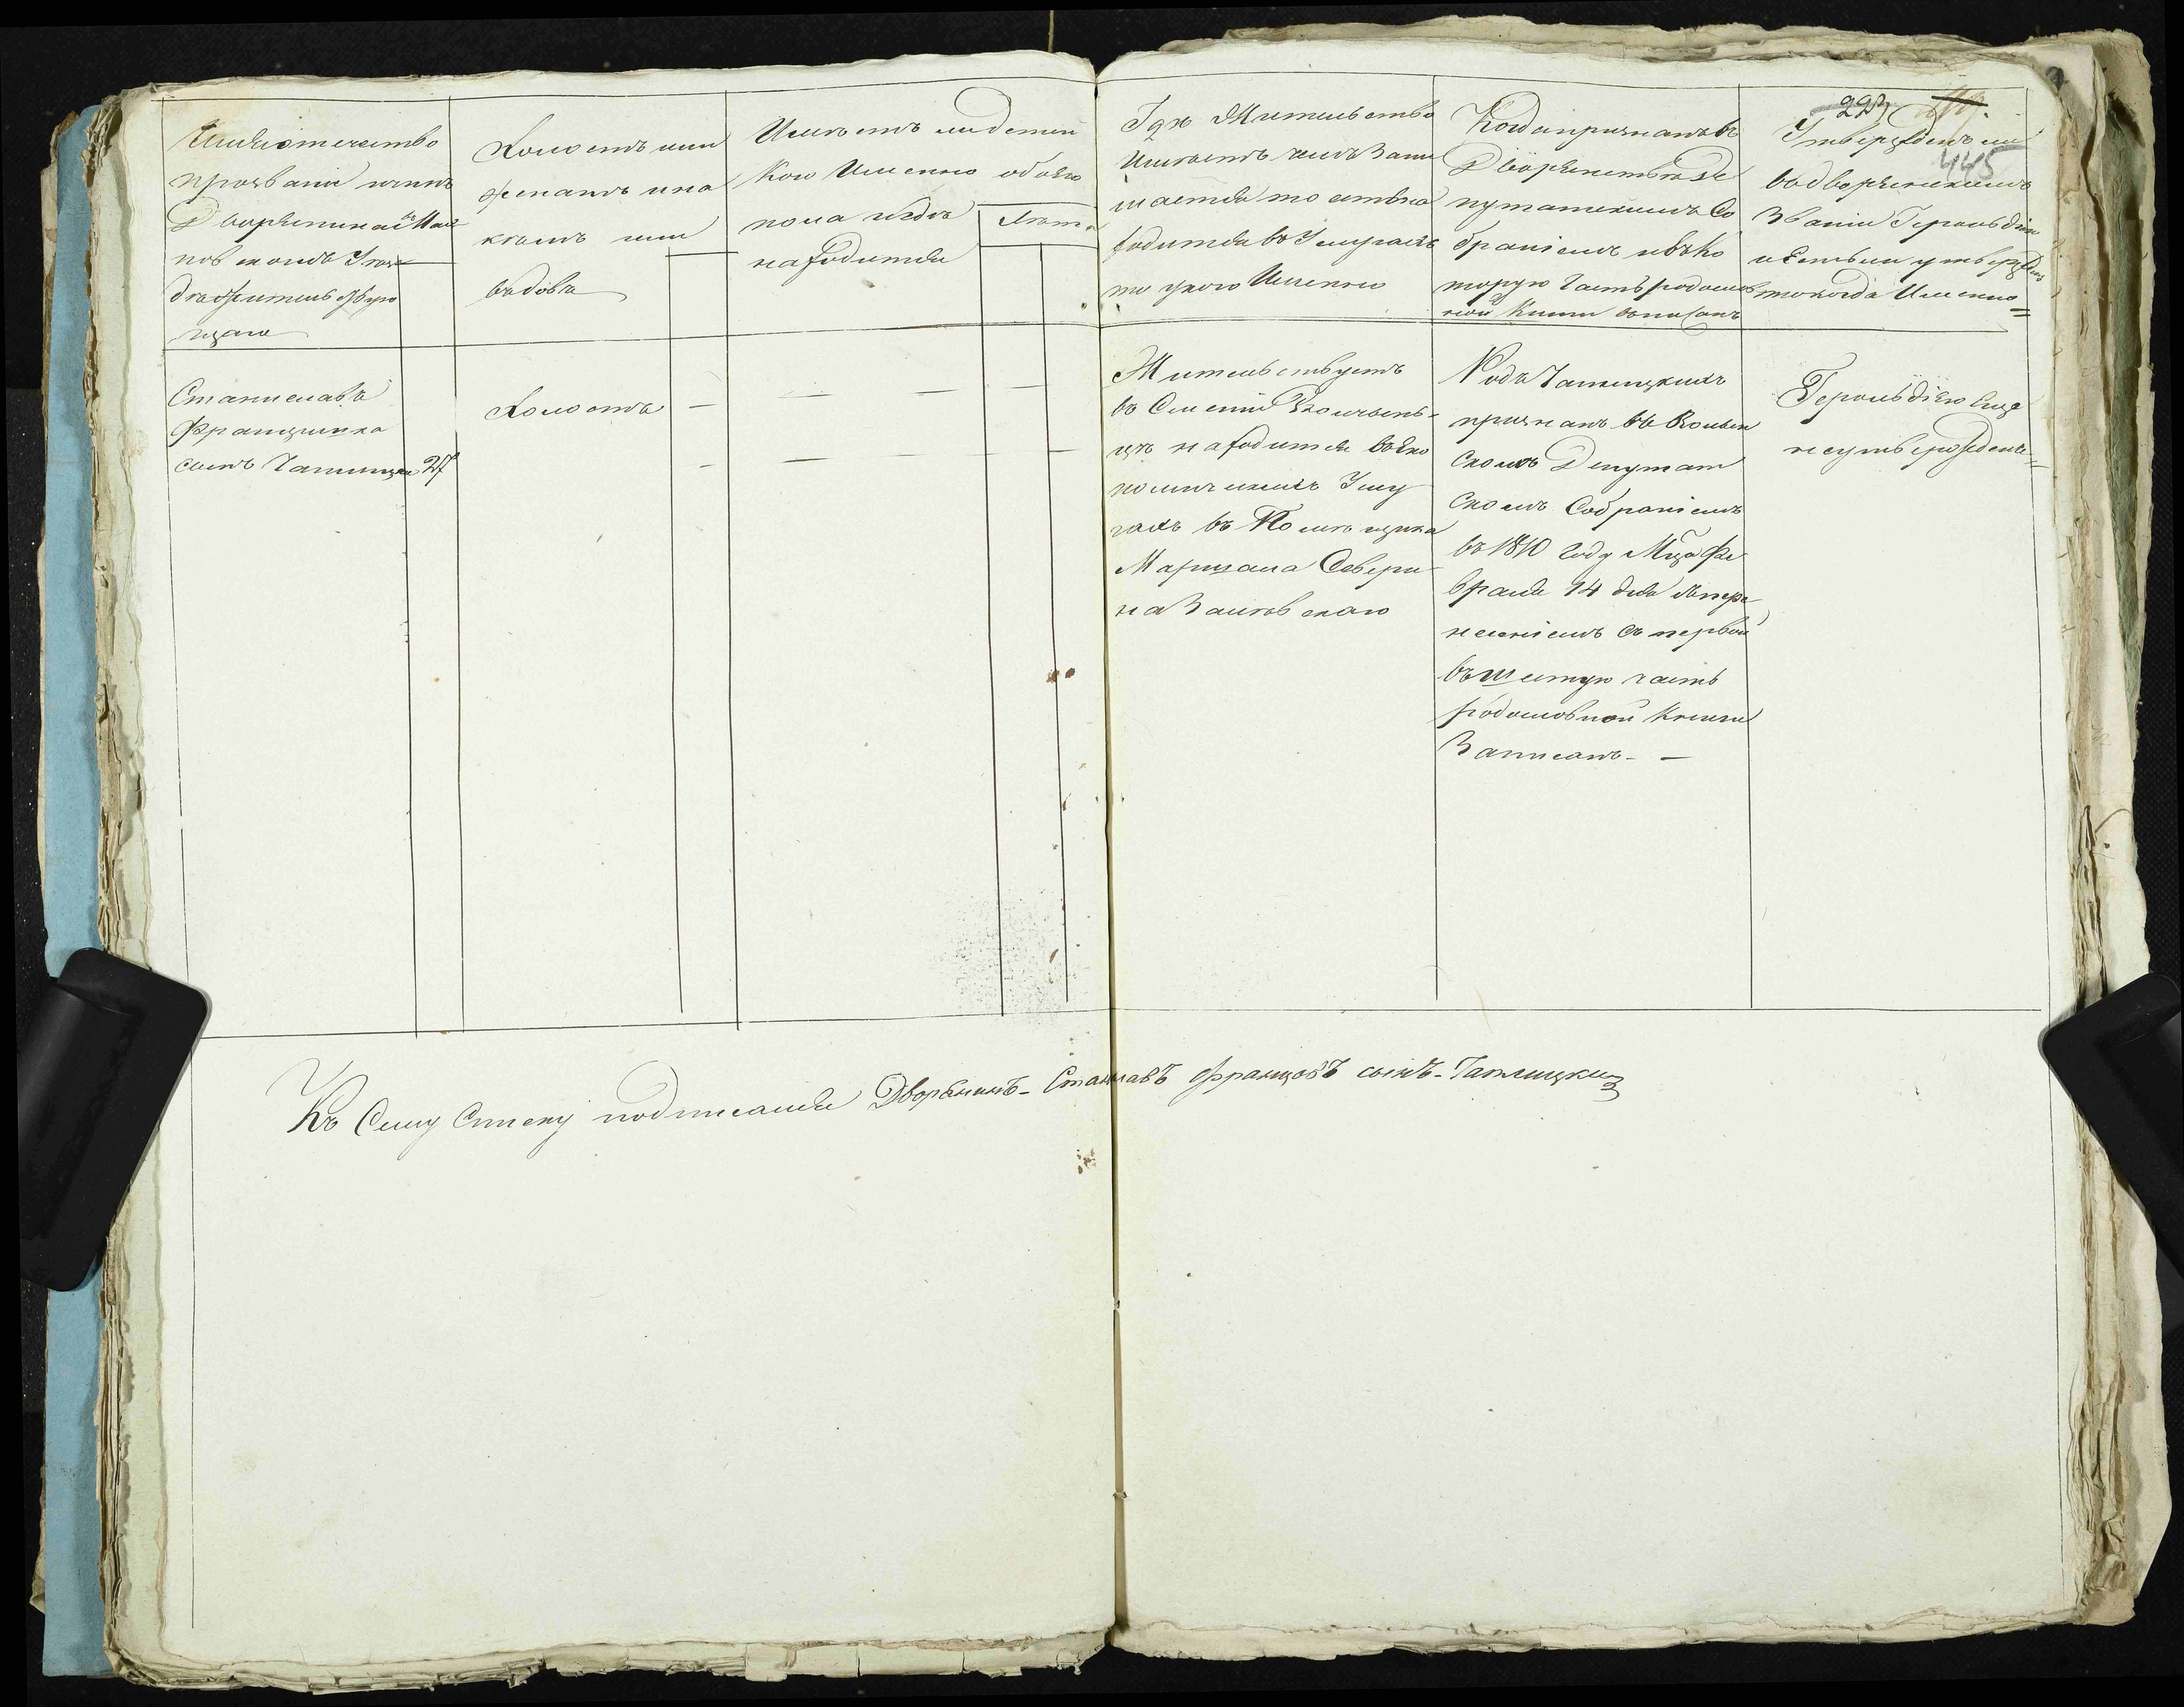 223
445
Имя отечество
прозвание и чинъ
Дворянина въ Махновскомъ Уез
де жительствую
щаго
Холостъ или
женатъ и на
комъ или
вдовъ
Имеетъ ли детей
кого Именно обоего
пола и где
находится
Лета
Где Жительство
Имеетъ чемъ Зани
мается то есть на
ходится въ Услугахъ
то у кого Именно
Когда признанъ въ
Дворянстве Де
путатскимъ Со
браніемъ и въ Ко
торую Часть родослов
ной Книги вписанъ
Утвержденъ ли
въ дворянскомъ
Званіи Герольдіею
и Естьли утвержденъ
то когда Именно
Станиславъ
Францишка
сынъ Чатлицкій 27
Холостъ
Жительствуетъ
въ Селеніи
це находится въ Эко
номическихъ Услу
гахъ въ Помещика
Маршала Севери
на Залевскаго
Родъ Чатлицкихъ
признанъ въ Волын
скомъ Депутат
скомъ Собраніемъ
въ 1810 году Мца Фе
враля 14 дня съ пере
несеніемъ съ первой
въ шестую часть
родословной Книги
Записанъ - —
Герольдіею Еще
не утвержденъ
Къ Сему Списку подписался Дворянинъ - Станиславъ Францовъ сынъ - Чатлицкій